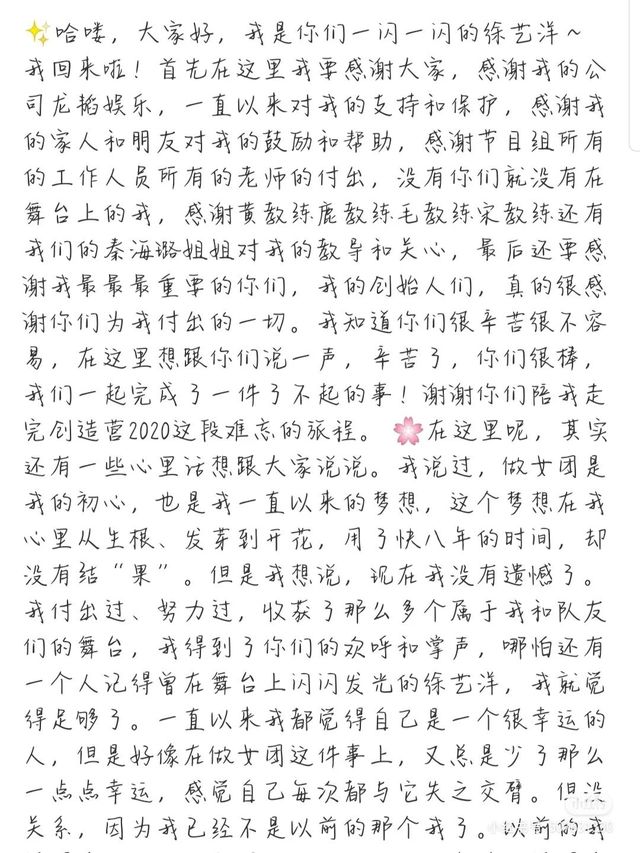 ✨哈喽，大家好，我是你们一闪一闪的徐艺洋～
我回来啦！首先在这里我要感谢大家，感谢我的公
司龙韬娱乐，一直以来对我的支持和保护，感谢我
的家人和朋友对我的鼓励和帮助，感谢节目组所有
的工作人员所有的老师的付出，没有你们就没有在
舞台上的我，感谢黄教练鹿教练毛教练宋教练还有
我们的秦海璐姐姐对我的教导和关心，最后还要感
谢我最最最重要的你们，我的创始人们，真的很感
谢你们为我付出的一切。我知道你们很辛苦很不容
易，在这里想跟你们说一声，辛苦了，你们很棒，
我们一起完成了一件了不起的事！谢谢你们陪我走
完创造营2020这段难忘的旅程。🌸在这里呢，其实
还有一些心里话想跟大家说说。我说过，做女团是
我的初心，也是我一直以来的梦想，这个梦想在我
心里从生根、发芽到开花，用了快八年的时间，却
没有结“果”。但是我想说，现在我没有遗憾了。
我付出过、努力过，收获了那么多个属于我和队友
们的舞台，我得到了你们的欢呼和掌声，哪怕还有
一个人记得曾在舞台上闪闪发光的徐艺洋，我就觉
得足够了。一直以来我都觉得自己是一个很幸运的
人，但是好像在做女团这件事上，又总是少了那么
一点点幸运，感觉自己每次都与它失之交臂。但没
关系，因为我已经不是以前的那个我了。以前的我